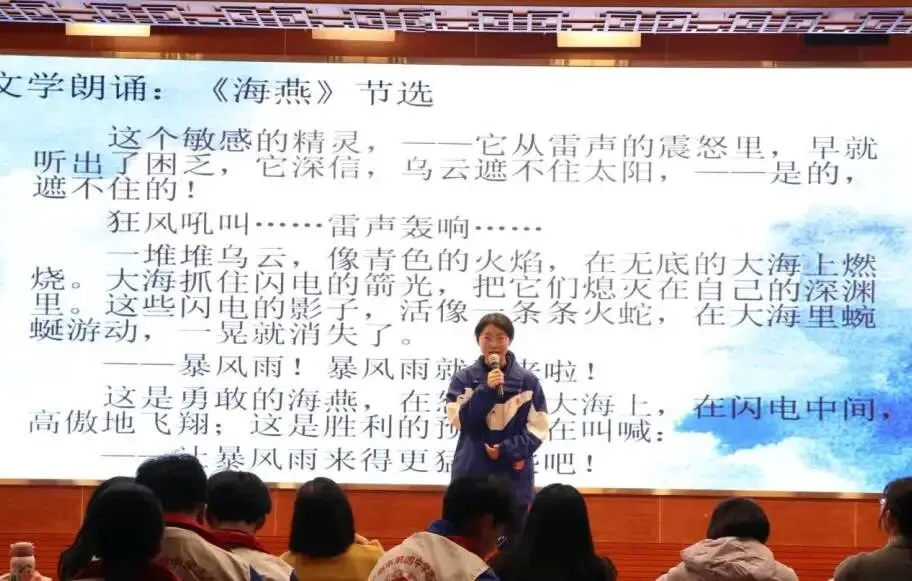 文学朗诵：《海燕》节选
这个敏感的精灵，——它从雷声的震怒里，早就
听出了困乏，它深信，乌云遮不住太阳，——是的，
遮不住的！
狂风吼叫……雷声轰响……
一堆堆乌云，像青色的火焰，在无底的大海上燃
烧。大海抓住闪电的箭光，把它们熄灭在自己的深渊
里。这些闪电的影子，活像一条条火蛇，在大海里蜿
蜒游动，一晃就消失了。
——暴风雨！暴风雨就 来啦！
这是勇敢的海燕，在 大海上，在闪电中间，
高傲地飞翔；这是胜利的预 在叫喊：
——让暴风雨来得更猛 吧！